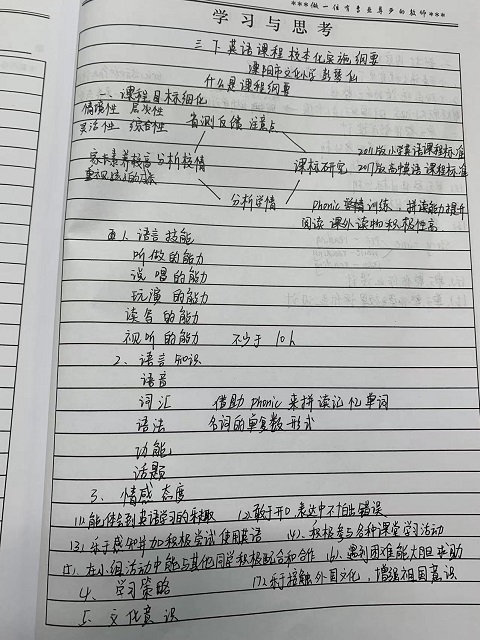 ***做一位有专业尊严的教师***
学习与思考
三下英语课程校本化实施纲要
溧阳市文化小学 彭琴仙
什么是课程纲要
一、课程目标细化
情境性 层次性
灵活性 综合性 省测反馈 注意点
2011版小学英语课程标准
分析校情 课标研究 2017版高中英语课程标准
分析学情 phonic 训练:拼读能力提升
阅读 课外读物积极性高
1、语言技能
听做的能力
说唱的能力
玩演的能力
读写的能力
视听的能力 不少于 10h
2、语言知识
语音
词汇 借助 phonic 来拼读记忆单词
语法 名词的单复数形式
功能
话题
3、情感态度
(1).能体会到英语学习的乐趣 (2).敢于开口,表达中不怕出错误
(3).乐于感知并加积极尝试使用英语 (4).积极参与各种课堂学习活动
(5).在小组活动中能与其他同学积极配合和合作 (6).遇到困难能大胆求助
4、学习策略 (7).乐于接触外国文化,增强祖国意识
5、文化意识